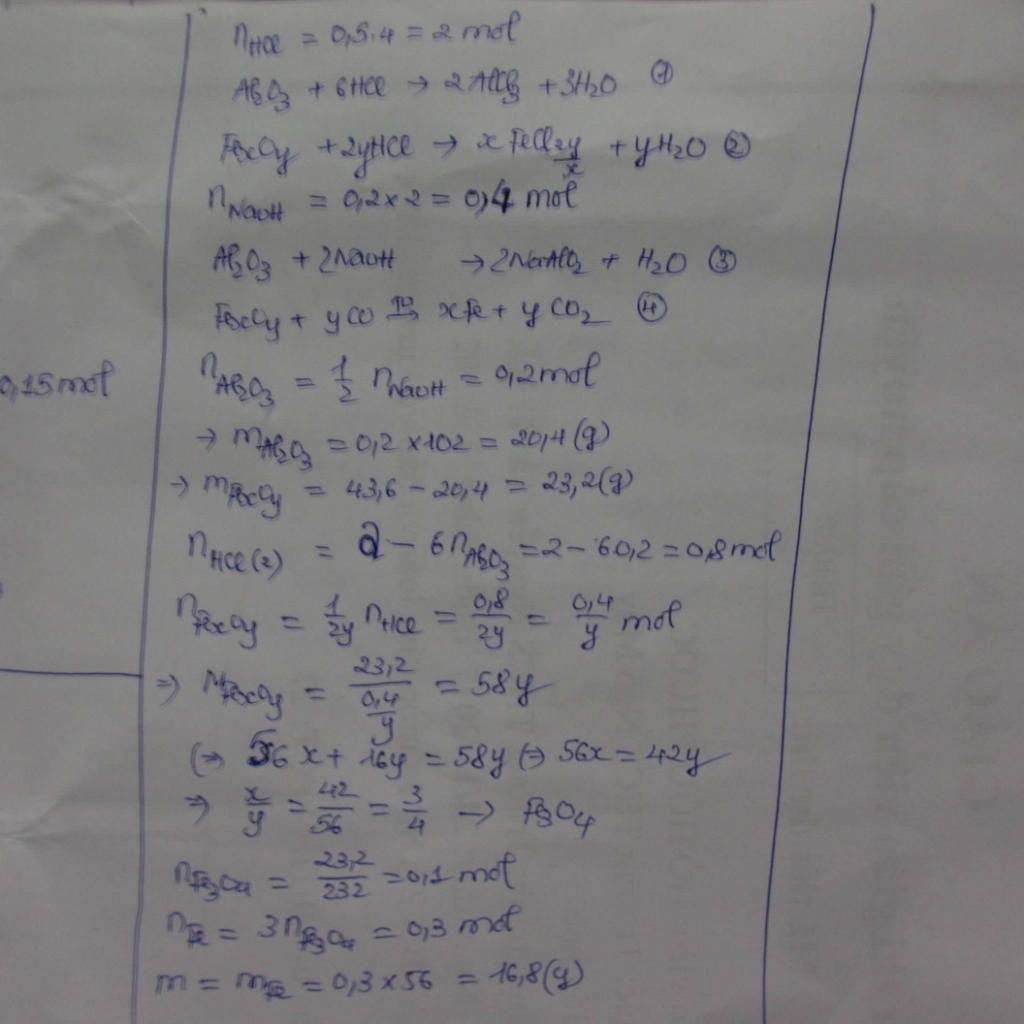 n_HCl = 0,5.4 = 2 mol
Al₂O₃ + 6HCl → 2AlCl₃ + 3H₂O ①
FexOy + 2yHCl → xFeCl2y/x + yH₂O ②
n_NaOH = 0,2 × 2 = 0,4 mol
Al₂O₃ + 2NaOH → 2NaAlO₂ + H₂O ③
FexOy + yCO →(t°) xFe + yCO₂ ④
0,15 mol
n_Al₂O₃ = 1/2 n_NaOH = 0,2 mol
→ m_Al₂O₃ = 0,2 × 102 = 20,4 (g)
→ m_FexOy = 43,6 - 20,4 = 23,2 (g)
n_HCl(2) = 2 - 6n_Al₂O₃ = 2 - 6.0,2 = 0,8 mol
n_FexOy = 1/2y n_HCl = 0,8/2y = 0,4/y mol
⇒ M_FexOy = 23,2/(0,4/y) = 58y
(⇒ 56x + 16y = 58y (⇒ 56x = 42y
⇒ x/y = 42/56 = 3/4 → Fe₃O₄
n_Fe₃O₄ = 23,2/232 = 0,1 mol
n_Fe = 3n_Fe₃O₄ = 0,3 mol
m = m_Fe = 0,3 × 56 = 16,8 (g)